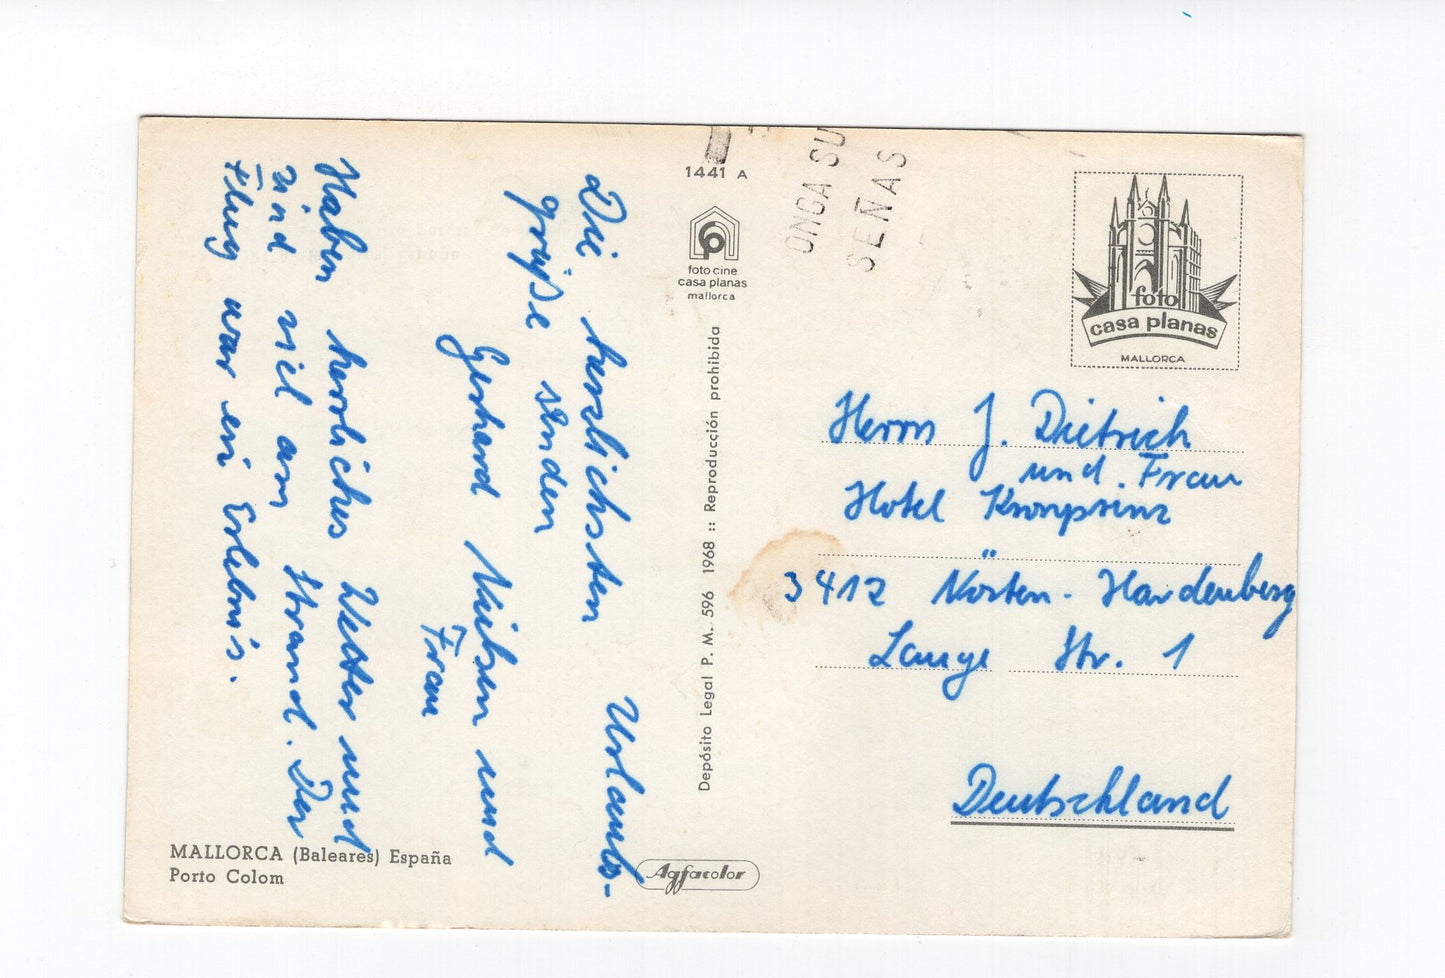 1441 A
foto cine
casa planas
mallorca
ONGA SU
SEÑAS
foto
casa planas
MALLORCA
Die herzlichsten Urlaubs-
grüße senden
Gerhard und
Frau
Haben herrliches Wetter und
sind viel am Strand. Der
Flug war ein Erlebnis.
Depósito Legal P. M. 596 1968 :: Reproducción prohibida
Herrn J. Dietrich
und Frau
Hotel Kronprinz
3412 Nörten-Hardenberg
Lange Str. 1
Deutschland
MALLORCA (Baleares) España
Porto Colom
Agfacolor